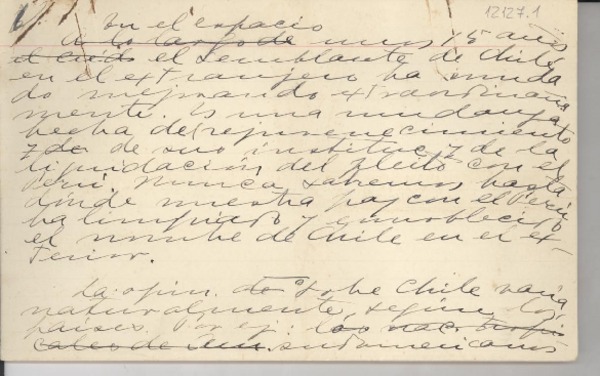 12127.1
En el espacio
A lo largo de unos 15 años
el cielo el semblante de Chile
en el extranjero ha muda
do mejorando extraordinaria
mente. Es una mudanza
hecha del rejuvenecimiento
de sus instituc. y de la
liquidación del pleito con el
Perú. Nunca sabremos hasta
donde nuestra paz con el Perú
ha limpiado y ennoblecido
el nombre de Chile en el ex-
terior.
La opin. sobre Chile varía
naturalmente, según los
países. Por ej: las
sudamericanos